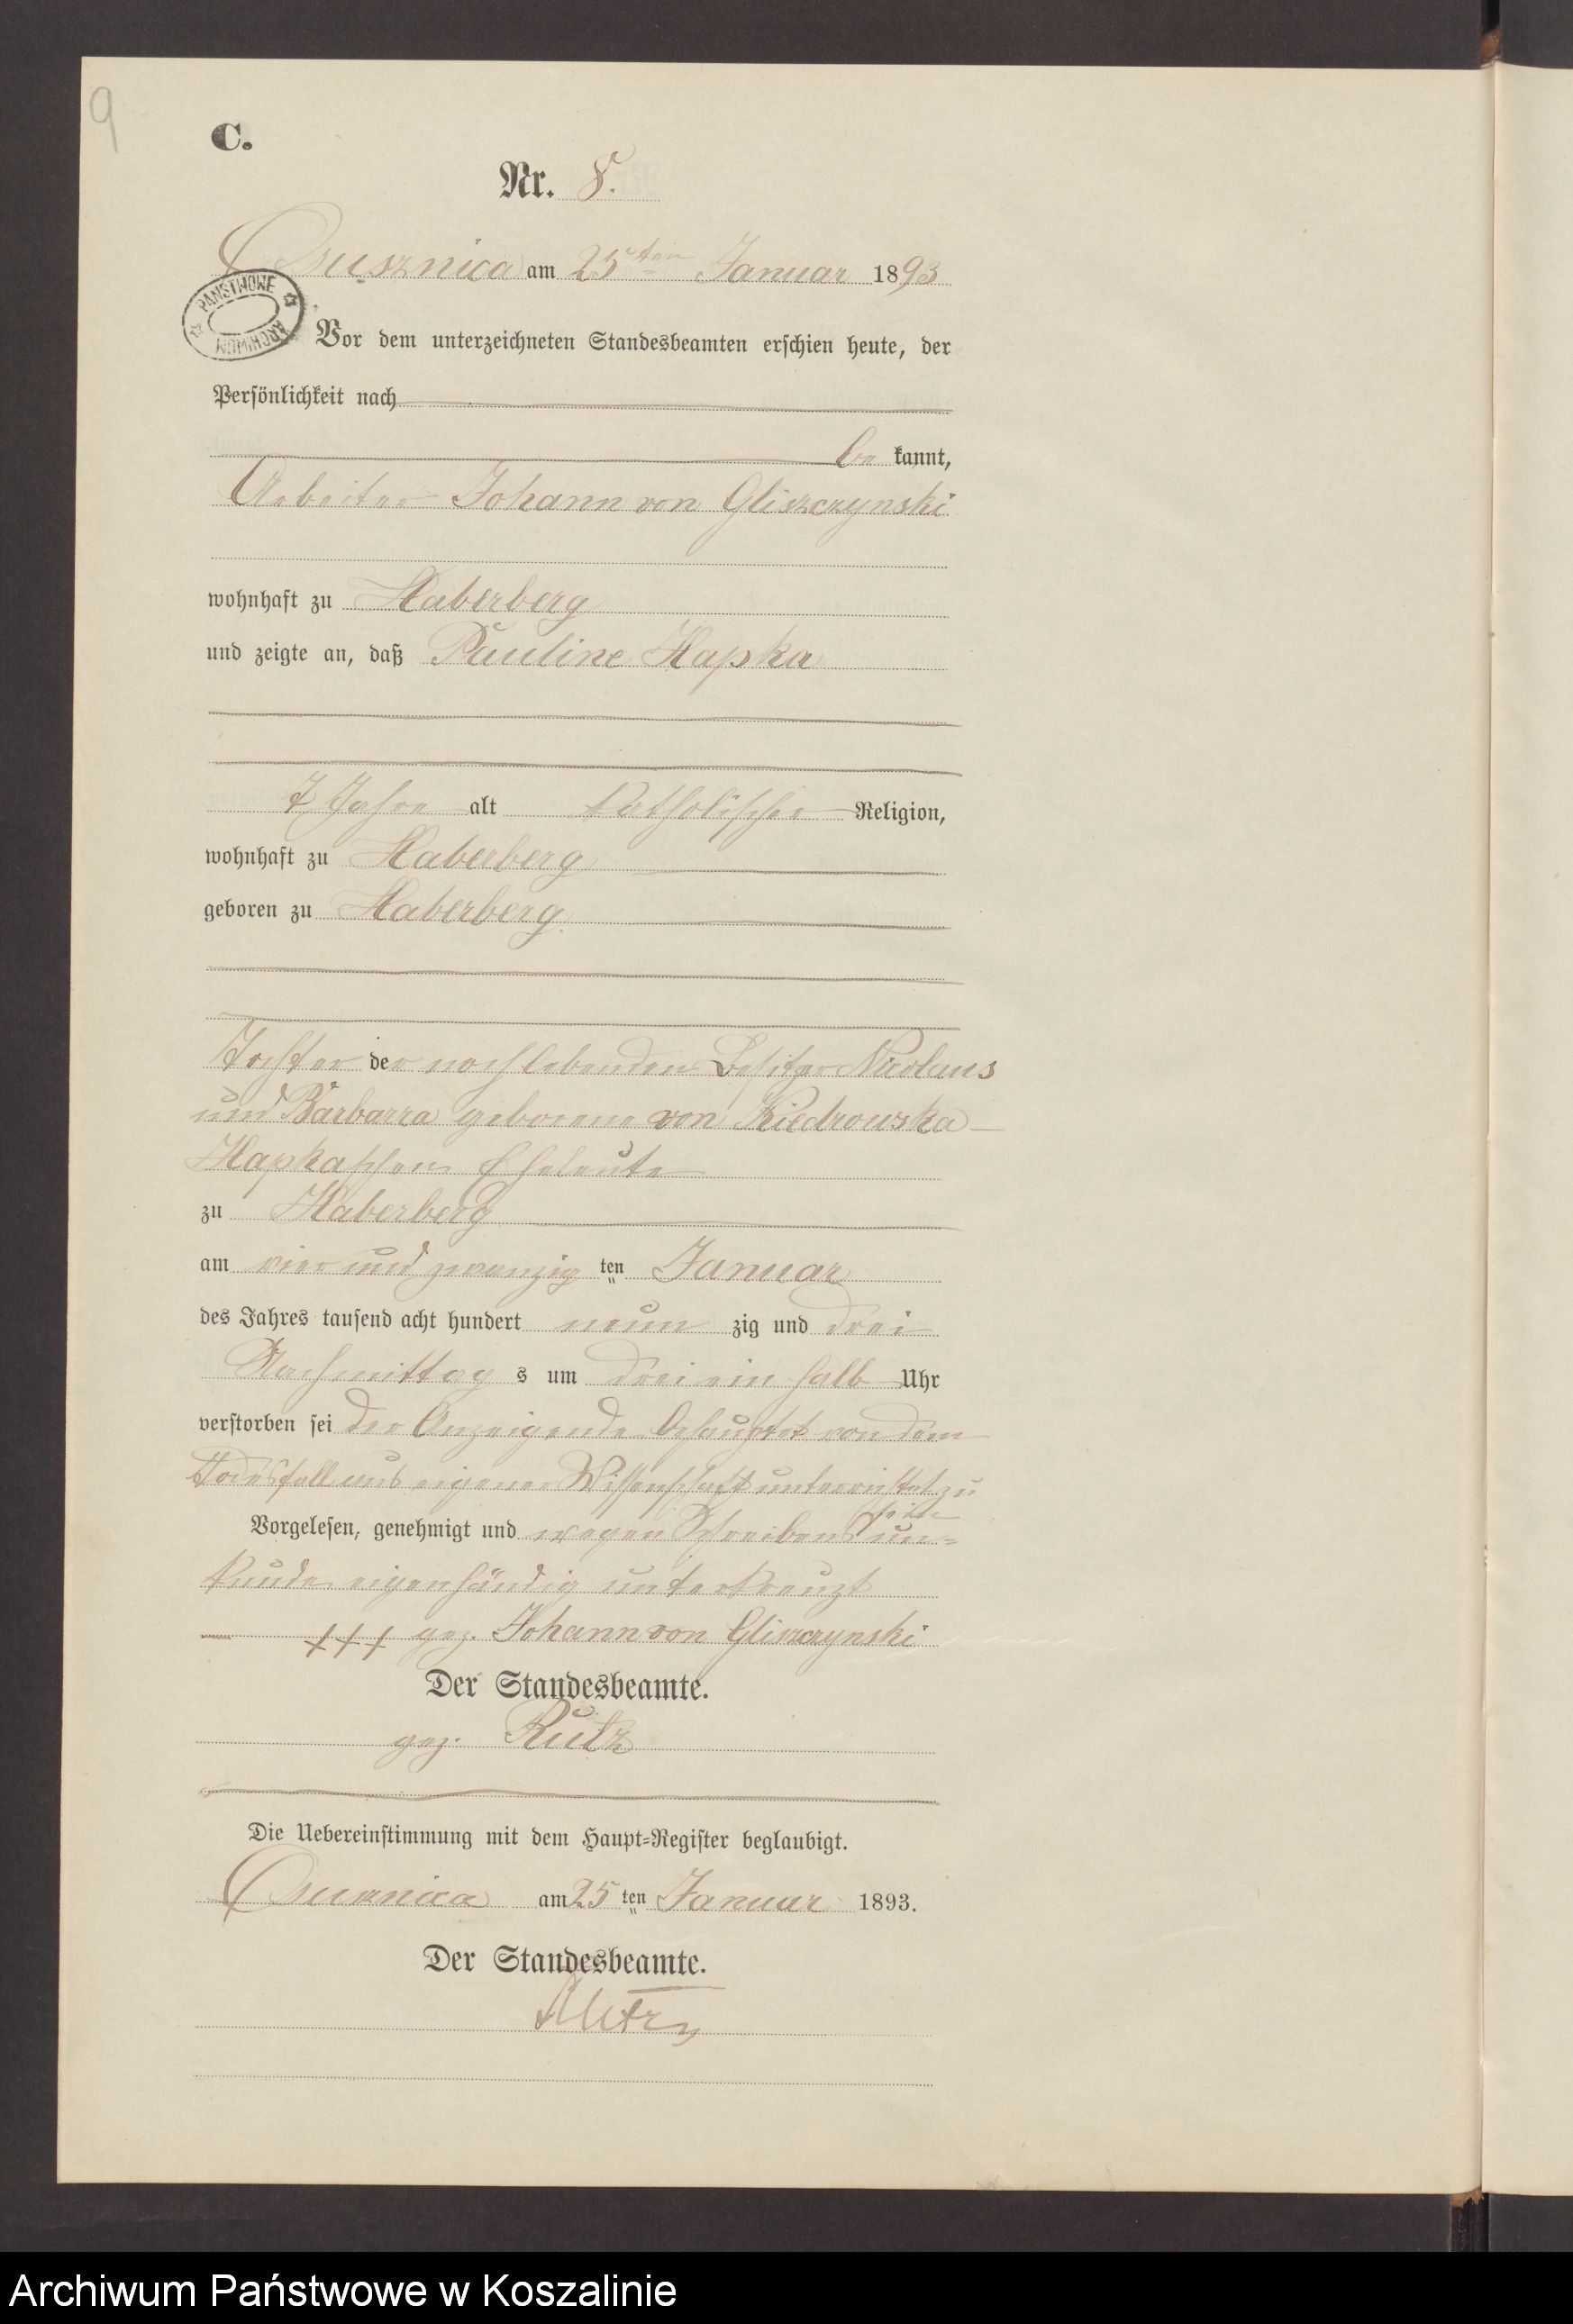 9
C.
Nr. 8.
Osusznica am 25ten Januar 1893
PAŃSTWOWE ARCHIWUM
Vor dem unterzeichneten Standesbeamten erschien heute, der
Persönlichkeit nach
be kannt,
Arbeiter Johann von Gliszczynski
wohnhaft zu Haberberg
und zeigte an, daß Pauline Hapka
7 Jahre alt katholischer Religion,
wohnhaft zu Haberberg
geboren zu Haberberg
Tochter der noch lebenden Besitzer Nicolaus
und Barbarra geborene von Kiedrowska
Hapkaschen Eheleute
zu Haberberg
am vier und zwanzig ten Januar
des Jahres tausend acht hundert neun zig und drei
Nachmittag s um drei ein halb Uhr
verstorben sei der Anzeigende behauptet von dem
Todesfall aus eigener Wissenschaft unterrichtet zu
sein
Vorgelesen, genehmigt und wegen Schreibens un=
kunde eigenhändig unterkreuzt
+++ gez. Johann von Gliszczynski
Der Standesbeamte.
gez. Rutz
Die Uebereinstimmung mit dem Haupt=Register beglaubigt.
Osusznica am 25 ten Januar 1893.
Der Standesbeamte.
Archiwum Państwowe w Koszalinie